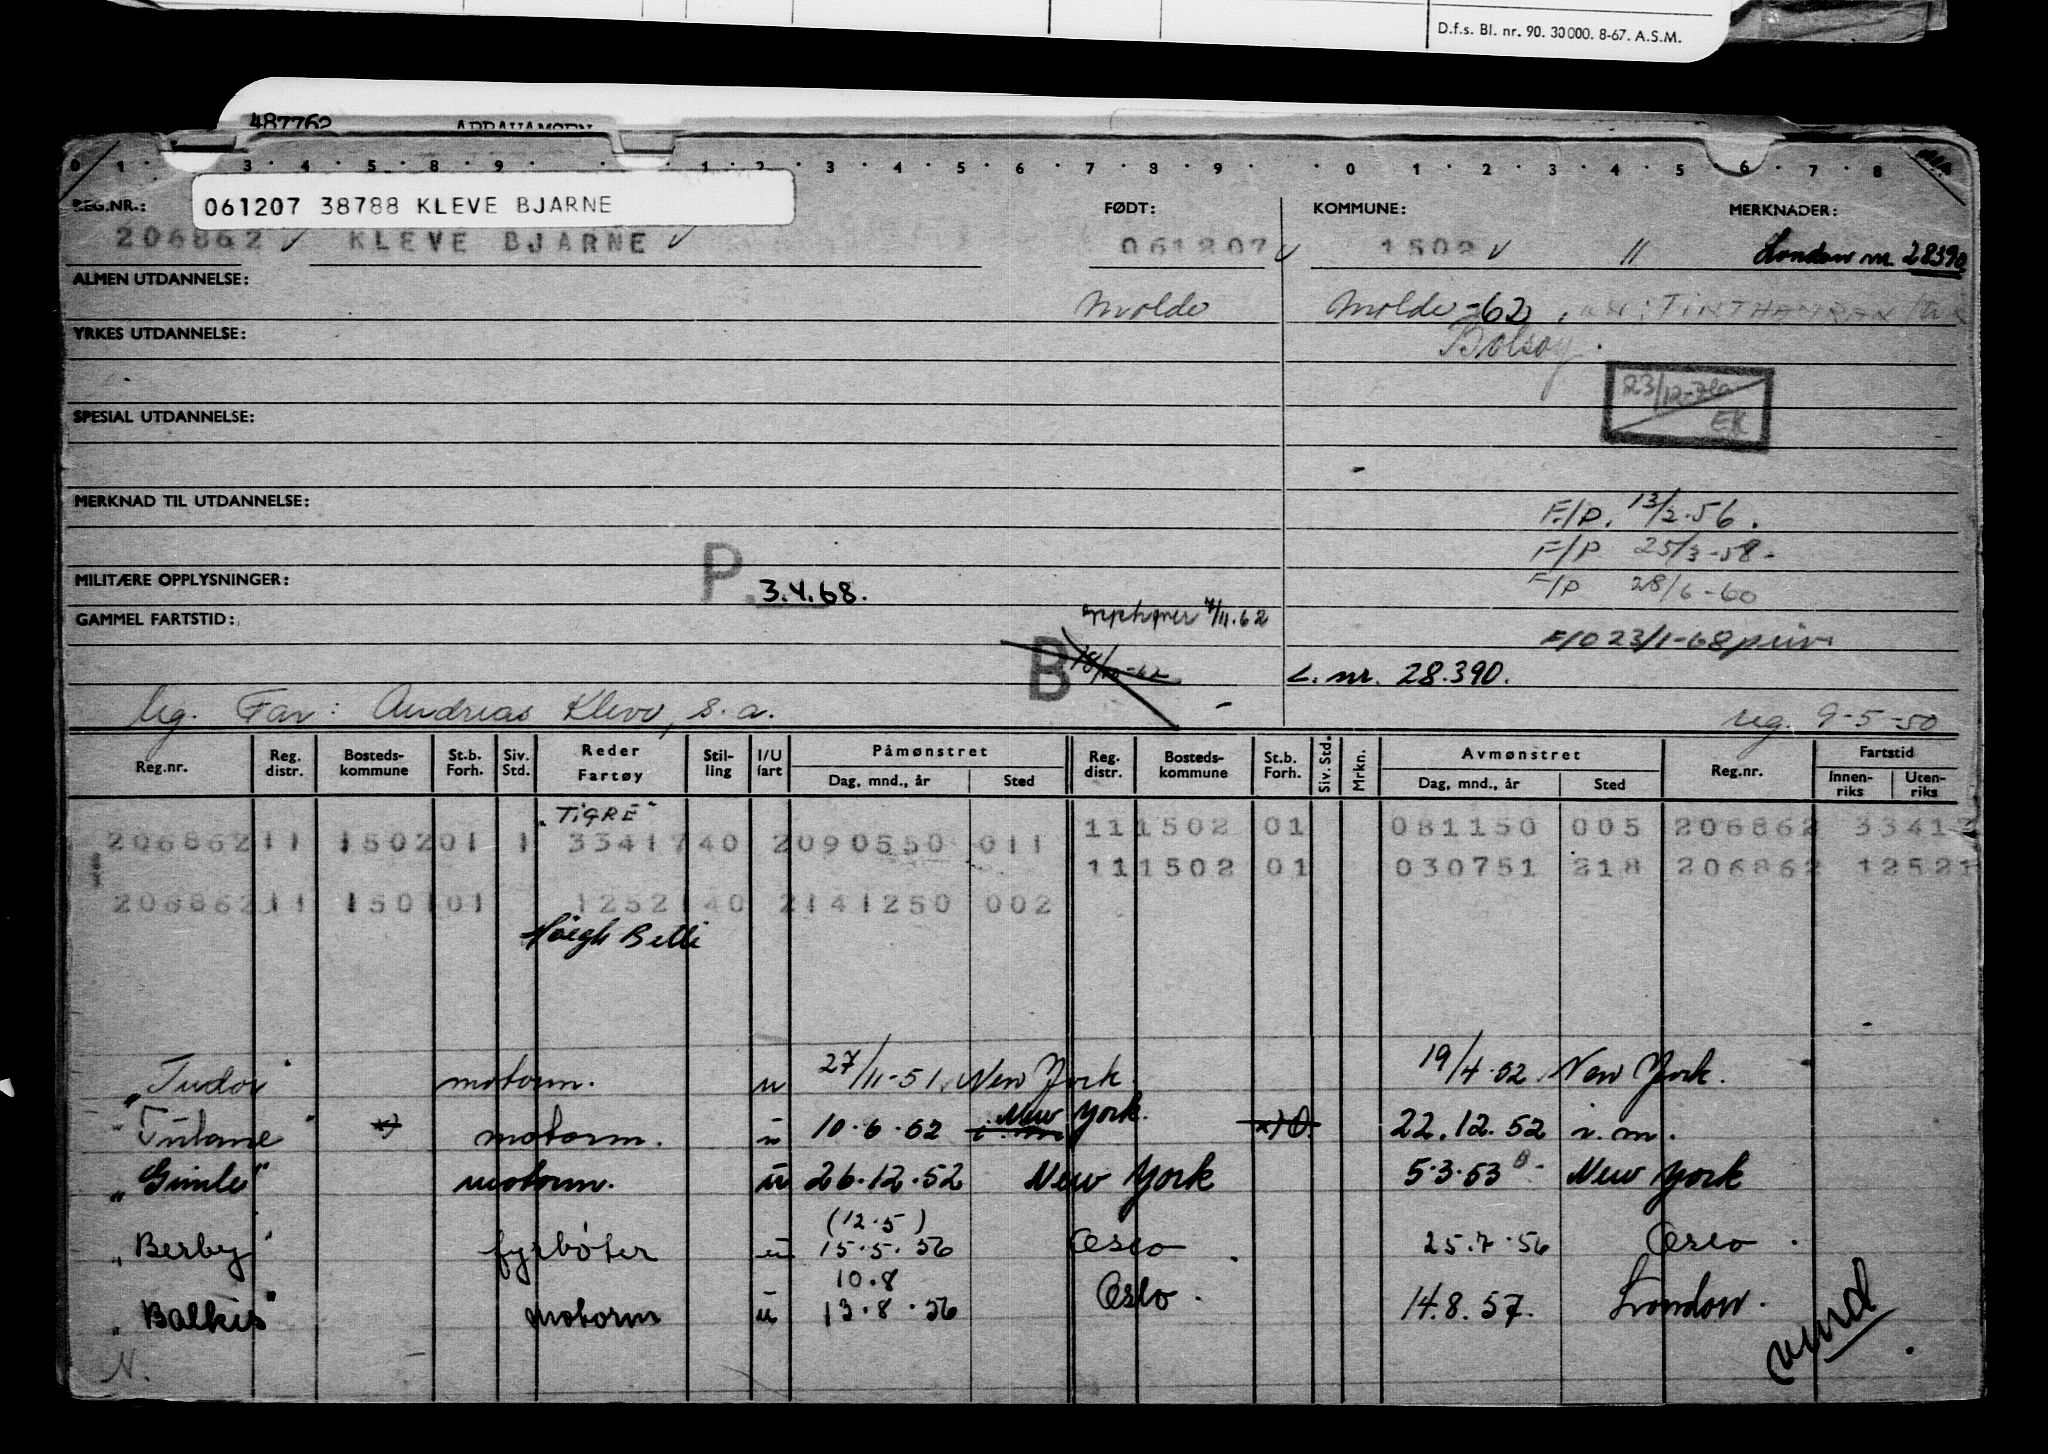 D.f.s. Bl. nr. 90. 30000. 8-67. A.S.M.
487762 ABRAHAMSEN
0 1 3 4 5 8 9 1 2 3 4 5 6 7 8 9 0 1 2 3 4 5 6 7 8
REG.NR.: FØDT: KOMMUNE: MERKNADER:
061207 38788 KLEVE BJARNE
206862 KLEVE BJARNE 061207 1502 " London nr. 28390
ALMEN UTDANNELSE:
Molde Molde -62
YRKES UTDANNELSE:
Bolsøy.
23/12-70
EK
SPESIAL UTDANNELSE:
MERKNAD TIL UTDANNELSE:
F/P. 13/2.56.
F/P 25/3-58-
MILITÆRE OPPLYSNINGER: P 3.4.68.
F/P 28/6-60
GAMMEL FARTSTID: opphører 7/11.62
F/O 23/1-68 priv.
B 18/10-62 L. nr. 28.390.
leg. Far: Andreas Kleve, s.a. reg. 9-5-50
Reg.nr. Reg. distr. Bosteds-kommune St.b. Forh. Siv. Std. Reder Fartøy Stil-ling I/U fart Påmønstret Dag, mnd., år Sted Reg. distr. Bosteds-kommune St.b. Forh. Siv. Std. Mrkn. Avmønstret Dag, mnd., år Sted Reg.nr. Fartstid Innen-riks Uten-riks
"TIGRE"
206862 11 1502 01 1 33417 40 2 090550 011 11 1502 01 081150 005 206862 33417
11 1502 01 030751 218 206862 12521
206862 11 1501 01 12521 40 2 141250 002
Høegh Belle
"Tudor" motorm. u 27/11-51. New York. 19/4.52. New York.
"Tulane" x) motorm. u 10.6.52 New York. x) O. 22.12.52 i.m.
"Gimle" motorm. u 26.12.52 New York 5.3.53 New York
(12.5)
"Berby" fyrbøter u 15.5.56 Oslo 25.7.56 Oslo.
10.8
"Balkis" motorm u 13.8.56 Oslo. 14.8.57. London.
N. vend